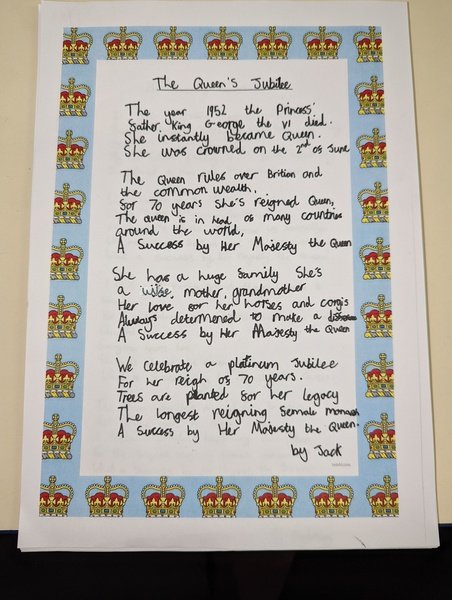 The Queen's Jubilee
The year 1952 the Princess'
father King George the VI died.
She instantly became Queen.
She was crowned on the 2nd of June
The Queen rules over Brition and
the common wealth,
for 70 years she's reigned Queen,
The queen is in head of many countries
around the world,
A Success by Her Majesty the Queen
She has a huge family She's
a wife, mother, grandmother
Her love for her horses and corgis
Always determened to make a
A Success by Her Majesty the Queen
We celebrate a platinum Jubilee
For her reigh of 70 years.
Trees are planted for her legacy
The longest reigning female monarch
A Success by Her Majesty the Queen.
by Jack